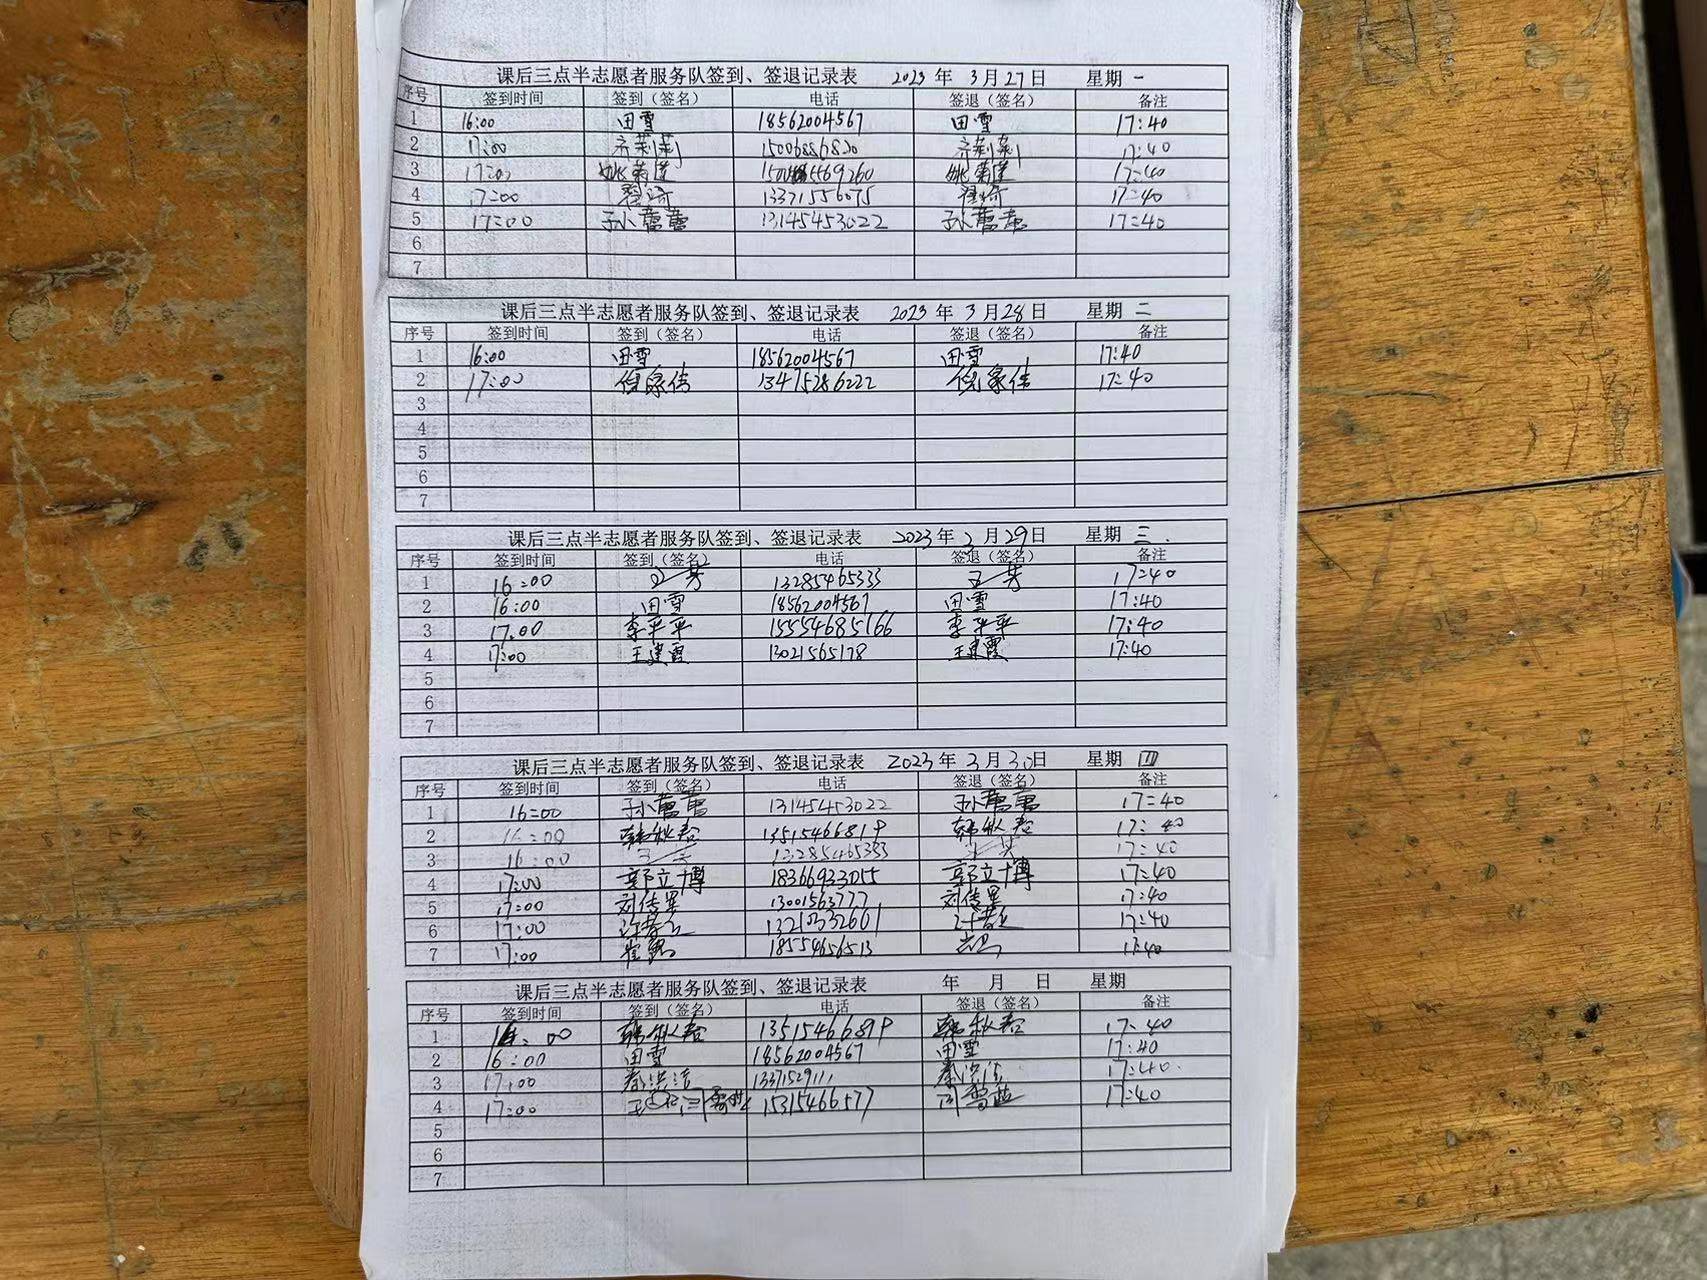 课后三点半志愿者服务队签到、签退记录表 2023 年 3 月 27 日 星期 一
序号 签到时间 签到（签名） 电话 签退（签名） 备注
1 16:00 田雪 18562004567 田雪 17:40
2 17:00 齐莉莉 15006886820 齐莉莉 17:40
3 17:00 姚菊莲 姚菊莲 17:40
4 17:00 翟琦 13371556075 翟琦 17:40
5 17:00 孙蕾蕾 13145453022 孙蕾蕾 17:40
6
7
课后三点半志愿者服务队签到、签退记录表 2023 年 3 月 28 日 星期 二
序号 签到时间 签到（签名） 电话 签退（签名） 备注
1 16:00 田雪 18562004567 田雪 17:40
2 17:00 倪家佳 13475286222 倪家佳 17:40
3
4
5
6
7
课后三点半志愿者服务队签到、签退记录表 2023 年 3 月 29 日 星期 三
序号 签到时间 签到（签名） 电话 签退（签名） 备注
1 16:00 王芳 13285465333 王芳 17:40
2 16:00 田雪 18562004567 田雪 17:40
3 17:00 李平平 15554685766 李平平 17:40
4 17:00 王建霞 13021565178 王建霞 17:40
5
6
7
课后三点半志愿者服务队签到、签退记录表 2023 年 3 月 30 日 星期 四
序号 签到时间 签到（签名） 电话 签退（签名） 备注
1 16:00 孙蕾蕾 13145453022 孙蕾蕾 17:40
2 16:00 韩秋君 13515466819 韩秋君 17:40
3 16:00 13285465333 17:40
4 17:00 郭立博 18366933055 郭立博 17:40
5 17:00 刘传军 13001563777 刘传军 17:40
6 17:00 17:40
7 17:00 18554656513 17:40
课后三点半志愿者服务队签到、签退记录表 年 月 日 星期
序号 签到时间 签到（签名） 电话 签退（签名） 备注
1 16:00 韩秋君 13515466819 韩秋君 17:40
2 16:00 田雪 18562004567 田雪 17:40
3 17:00 秦洪洁 1337152911 秦洪洁 17:40
4 17:00 15315466577 17:40
5
6
7